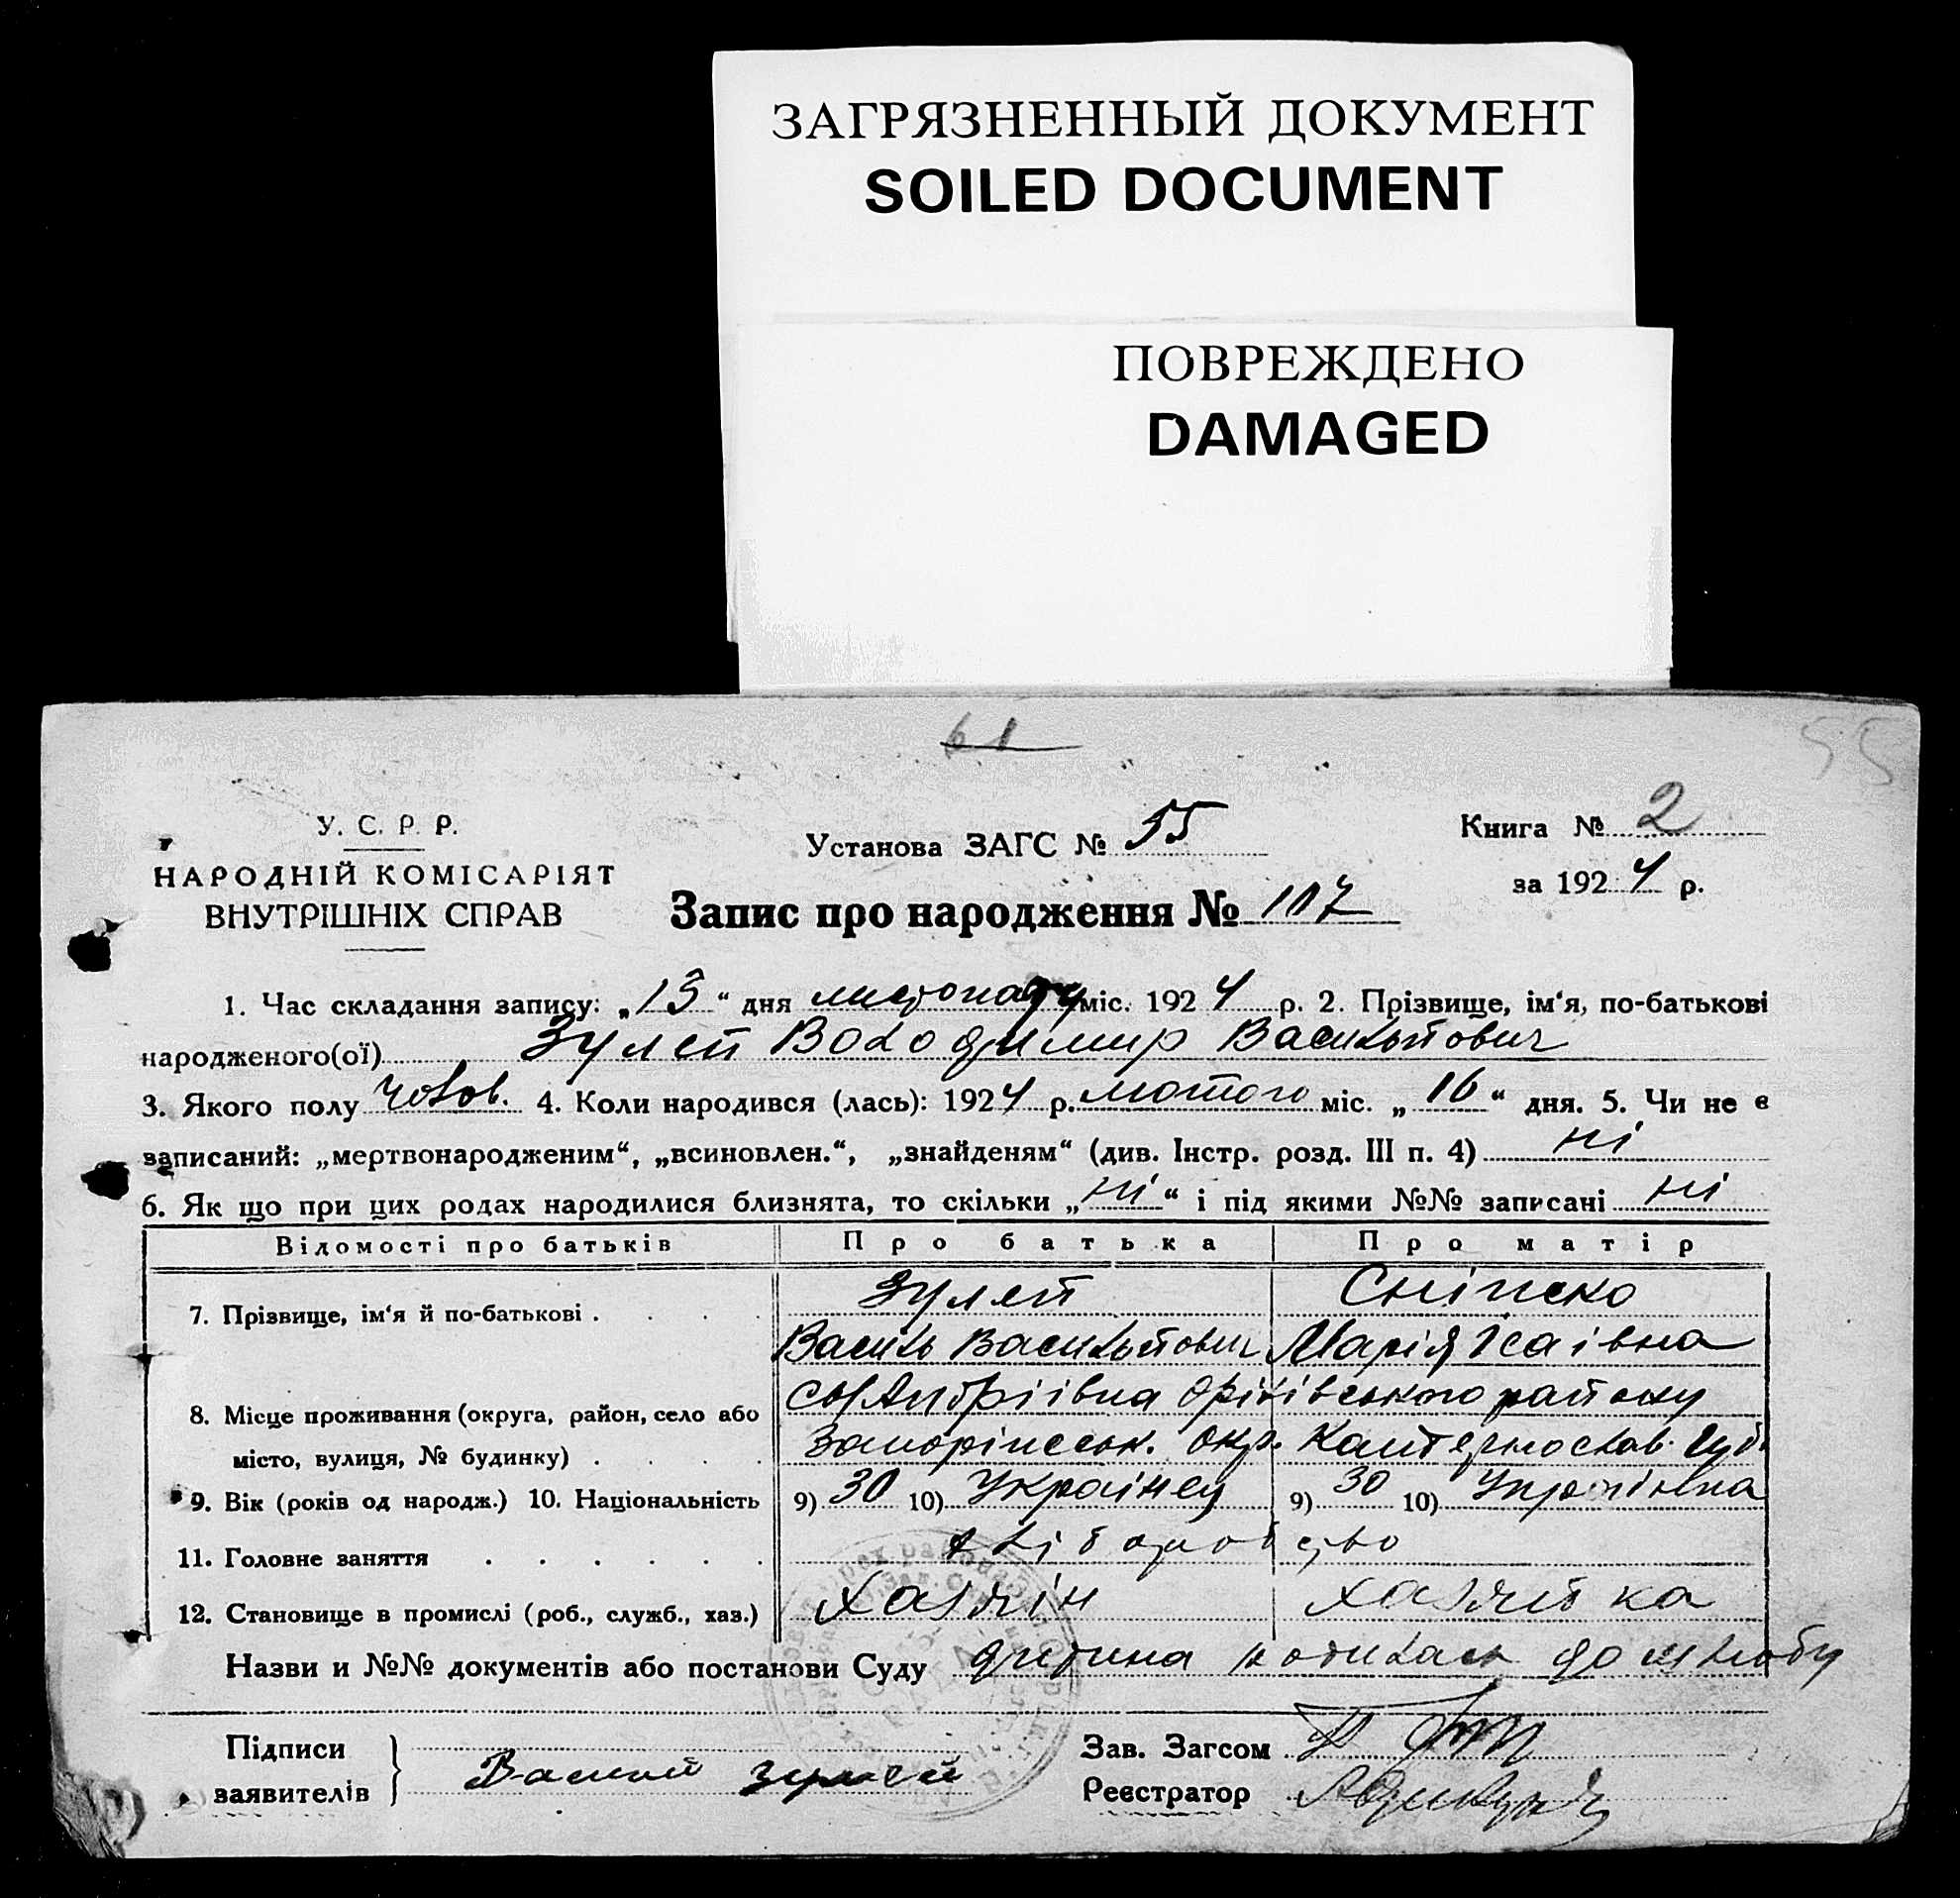 ЗАГРЯЗНЕННЫЙ ДОКУМЕНТ
SOILED DOCUMENT
ПОВРЕЖДЕНО
DAMAGED
61
55
У. С. Р. Р.
НАРОДНІЙ КОМІСАРІЯТ
ВНУТРІШНІХ СПРАВ
Установа ЗАГС № 55
Запис про народження № 117
Книга № 2
за 1924 р.
1. Час складання запису: „13“ дня листопаду міс. 1924 р. 2. Прізвище, ім‘я, по-батькові
народженого(ої) Зулей Володимир Васильйович
3. Якого полу чолов. 4. Коли народився (лась): 1924 р. лютого міс. „16“ дня. 5. Чи не є
записаний: „мертвонародженим“, „всиновлен.“, „знайденям“ (див. Інстр. розд. III п. 4) ні
6. Як що при цих родах народилися близнята, то скільки „ні“ і під якими №№ записані ні
Відомості про батьків Про батька Про матір
7. Прізвище, ім‘я й по-батькові . . . . Зулей
Василь Васильйович Марія Ісаівна
8. Місце проживання (округа, район, село або
місто, вулиця, № будинку) . . . .
с Андріівна Оріхівського району
Запоріжськ. окр. Катеринослав. Губ.
9. Вік (років од народж.) 10. Національність 9) 30 10) Украінец 9) 30 10) Украінка
11. Головне заняття . . . . . . хліборобство
12. Становище в промислі (роб., служб., хаз.) хазяін хазяйка
Назви и №№ документів або постанови Суду дитина родилась до шлюбу
Підписи
заявителів
Василий Зулей
Зав. Загсом
Реєстратор